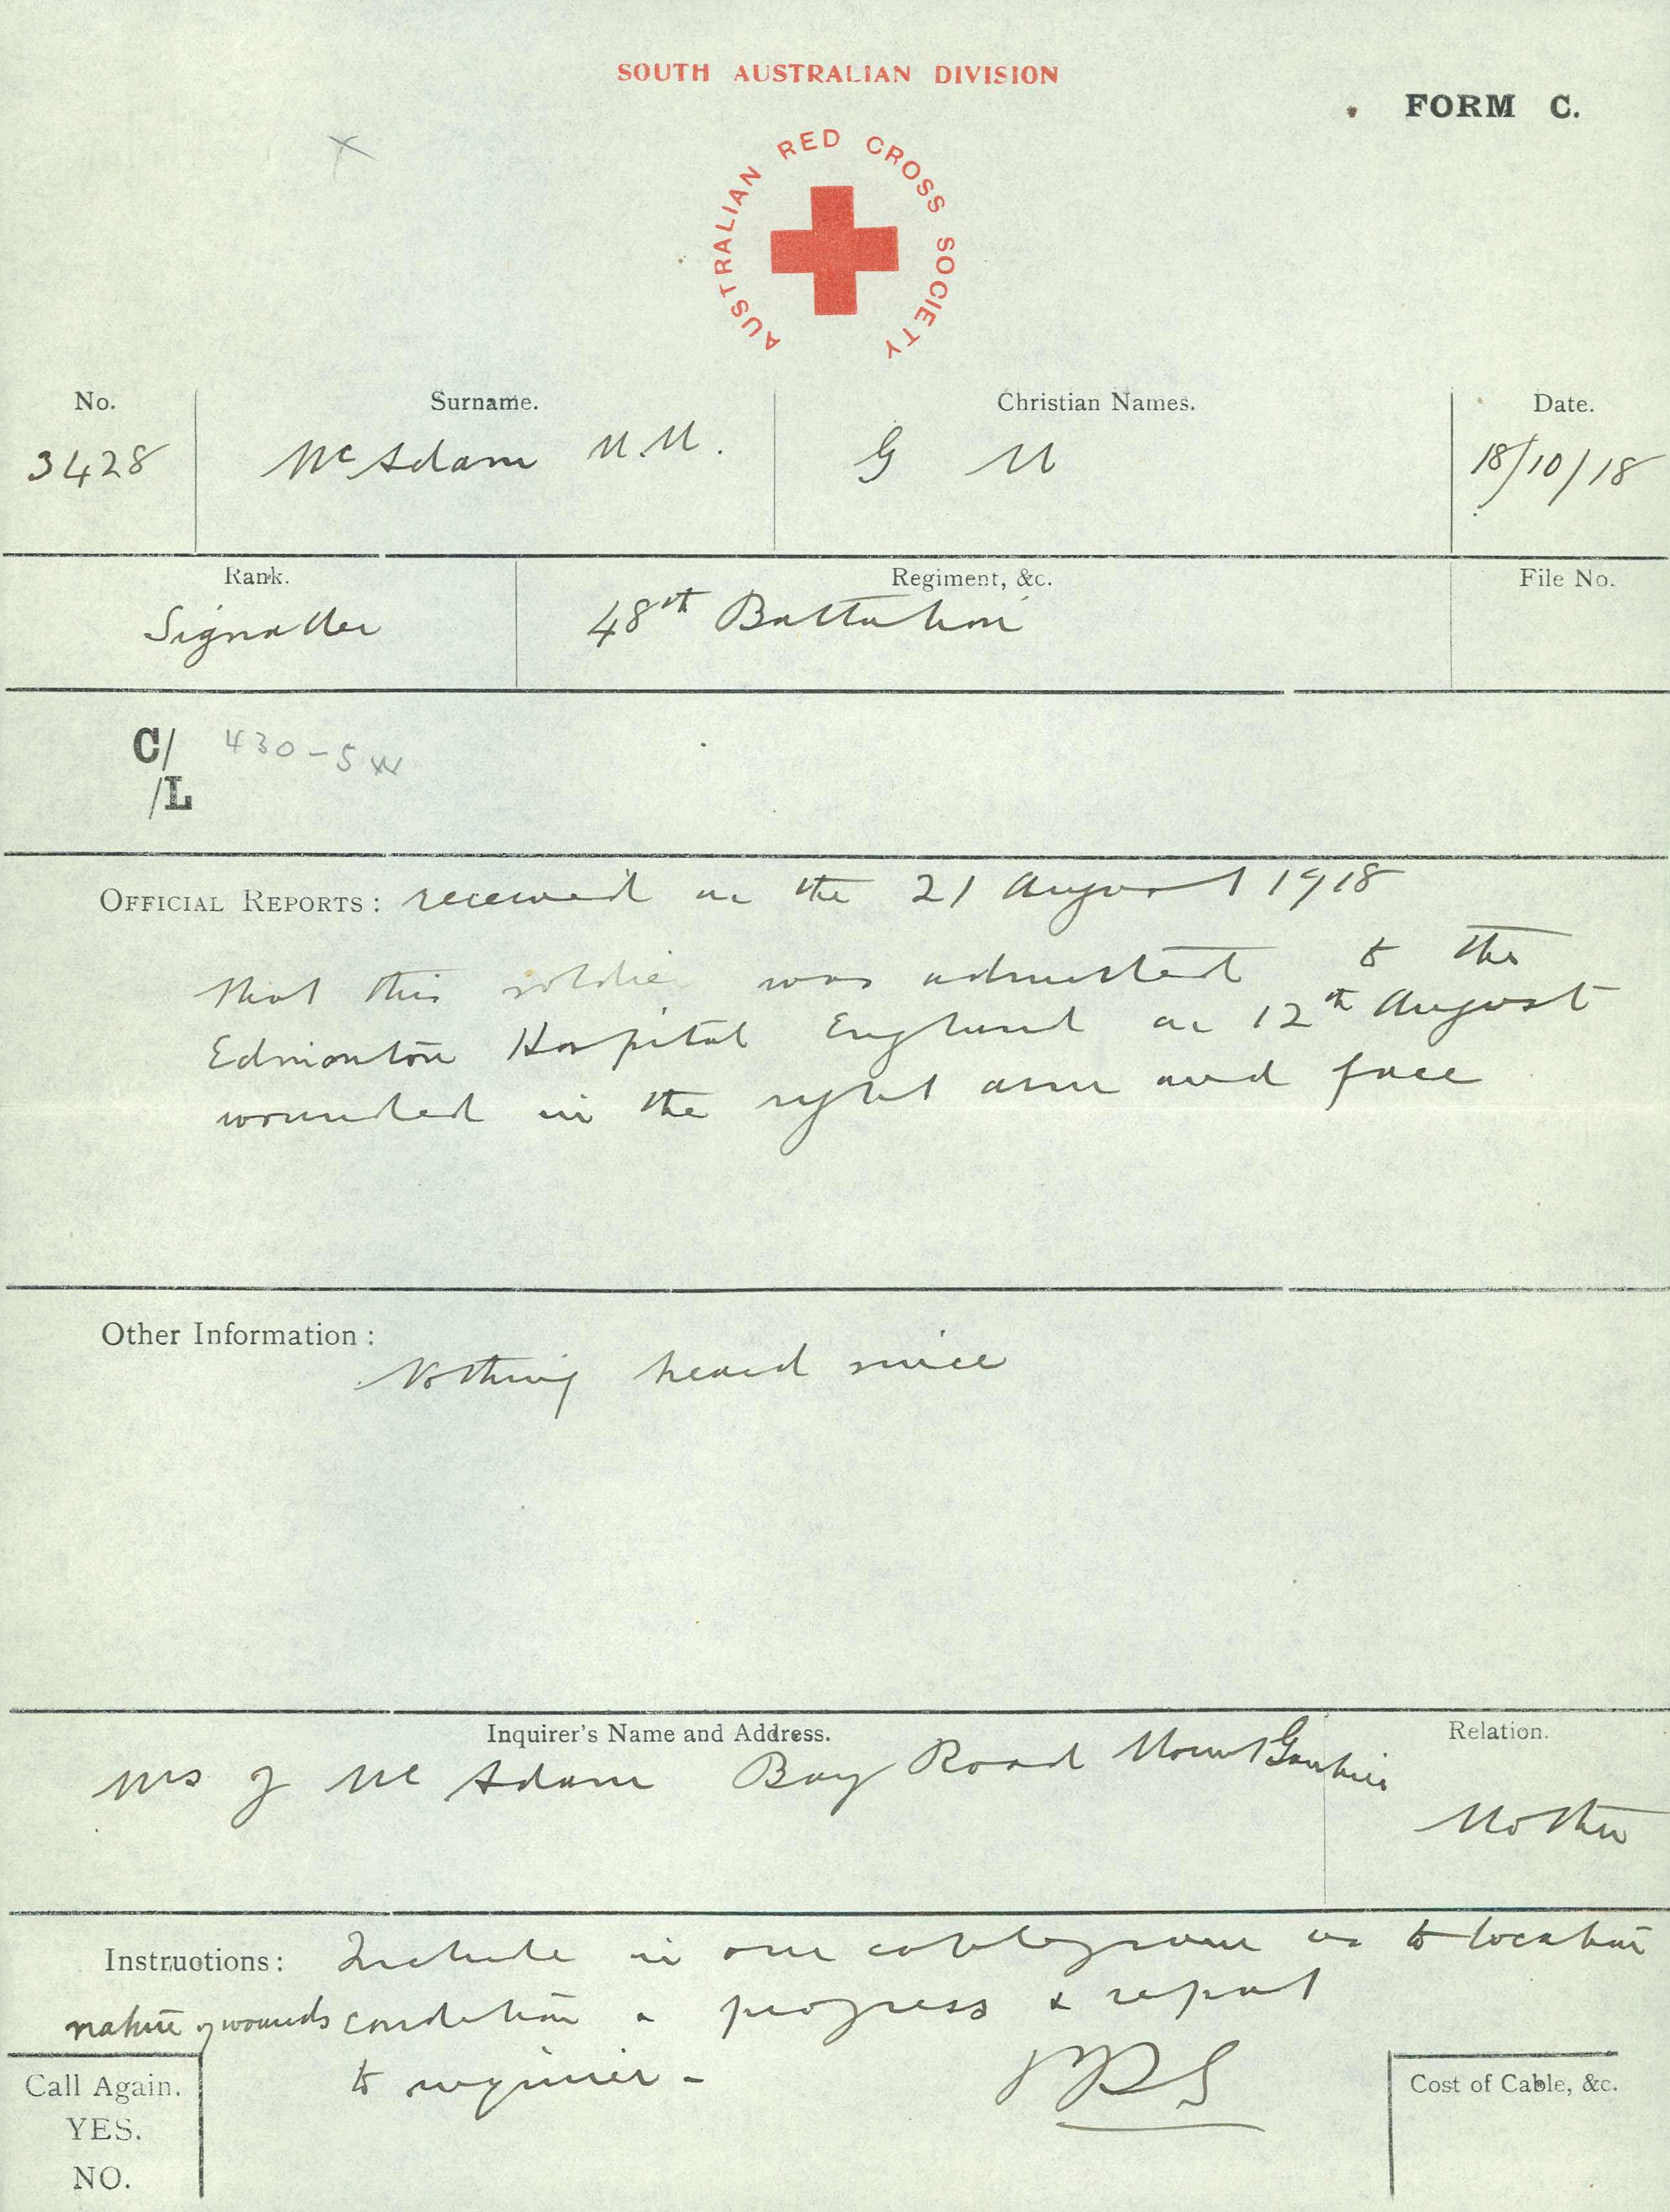 SOUTH AUSTRALIAN DIVISION
FORM C.
AUSTRALIAN RED CROSS SOCIETY
No. Surname. Christian Names. Date.
3428 McAdam M.M. G M 18/10/18
Rank. Regiment, &c. File No.
Signaller 48th Battalion
C/ 430-5
/L
OFFICIAL REPORTS: received on the 21 August 1918
that this soldier was admitted to the
Edmonton Hospital England on 12th August
wounded in the right arm and face
Other Information:
Nothing heard since
Inquirer's Name and Address. Relation.
Mrs J McAdam Bay Road Mount Gambier
Mother
Instructions: Include in our cablegram as to location
nature of wounds condition & progress & report
to inquirer -
Call Again. Cost of Cable, &c.
YES.
NO.